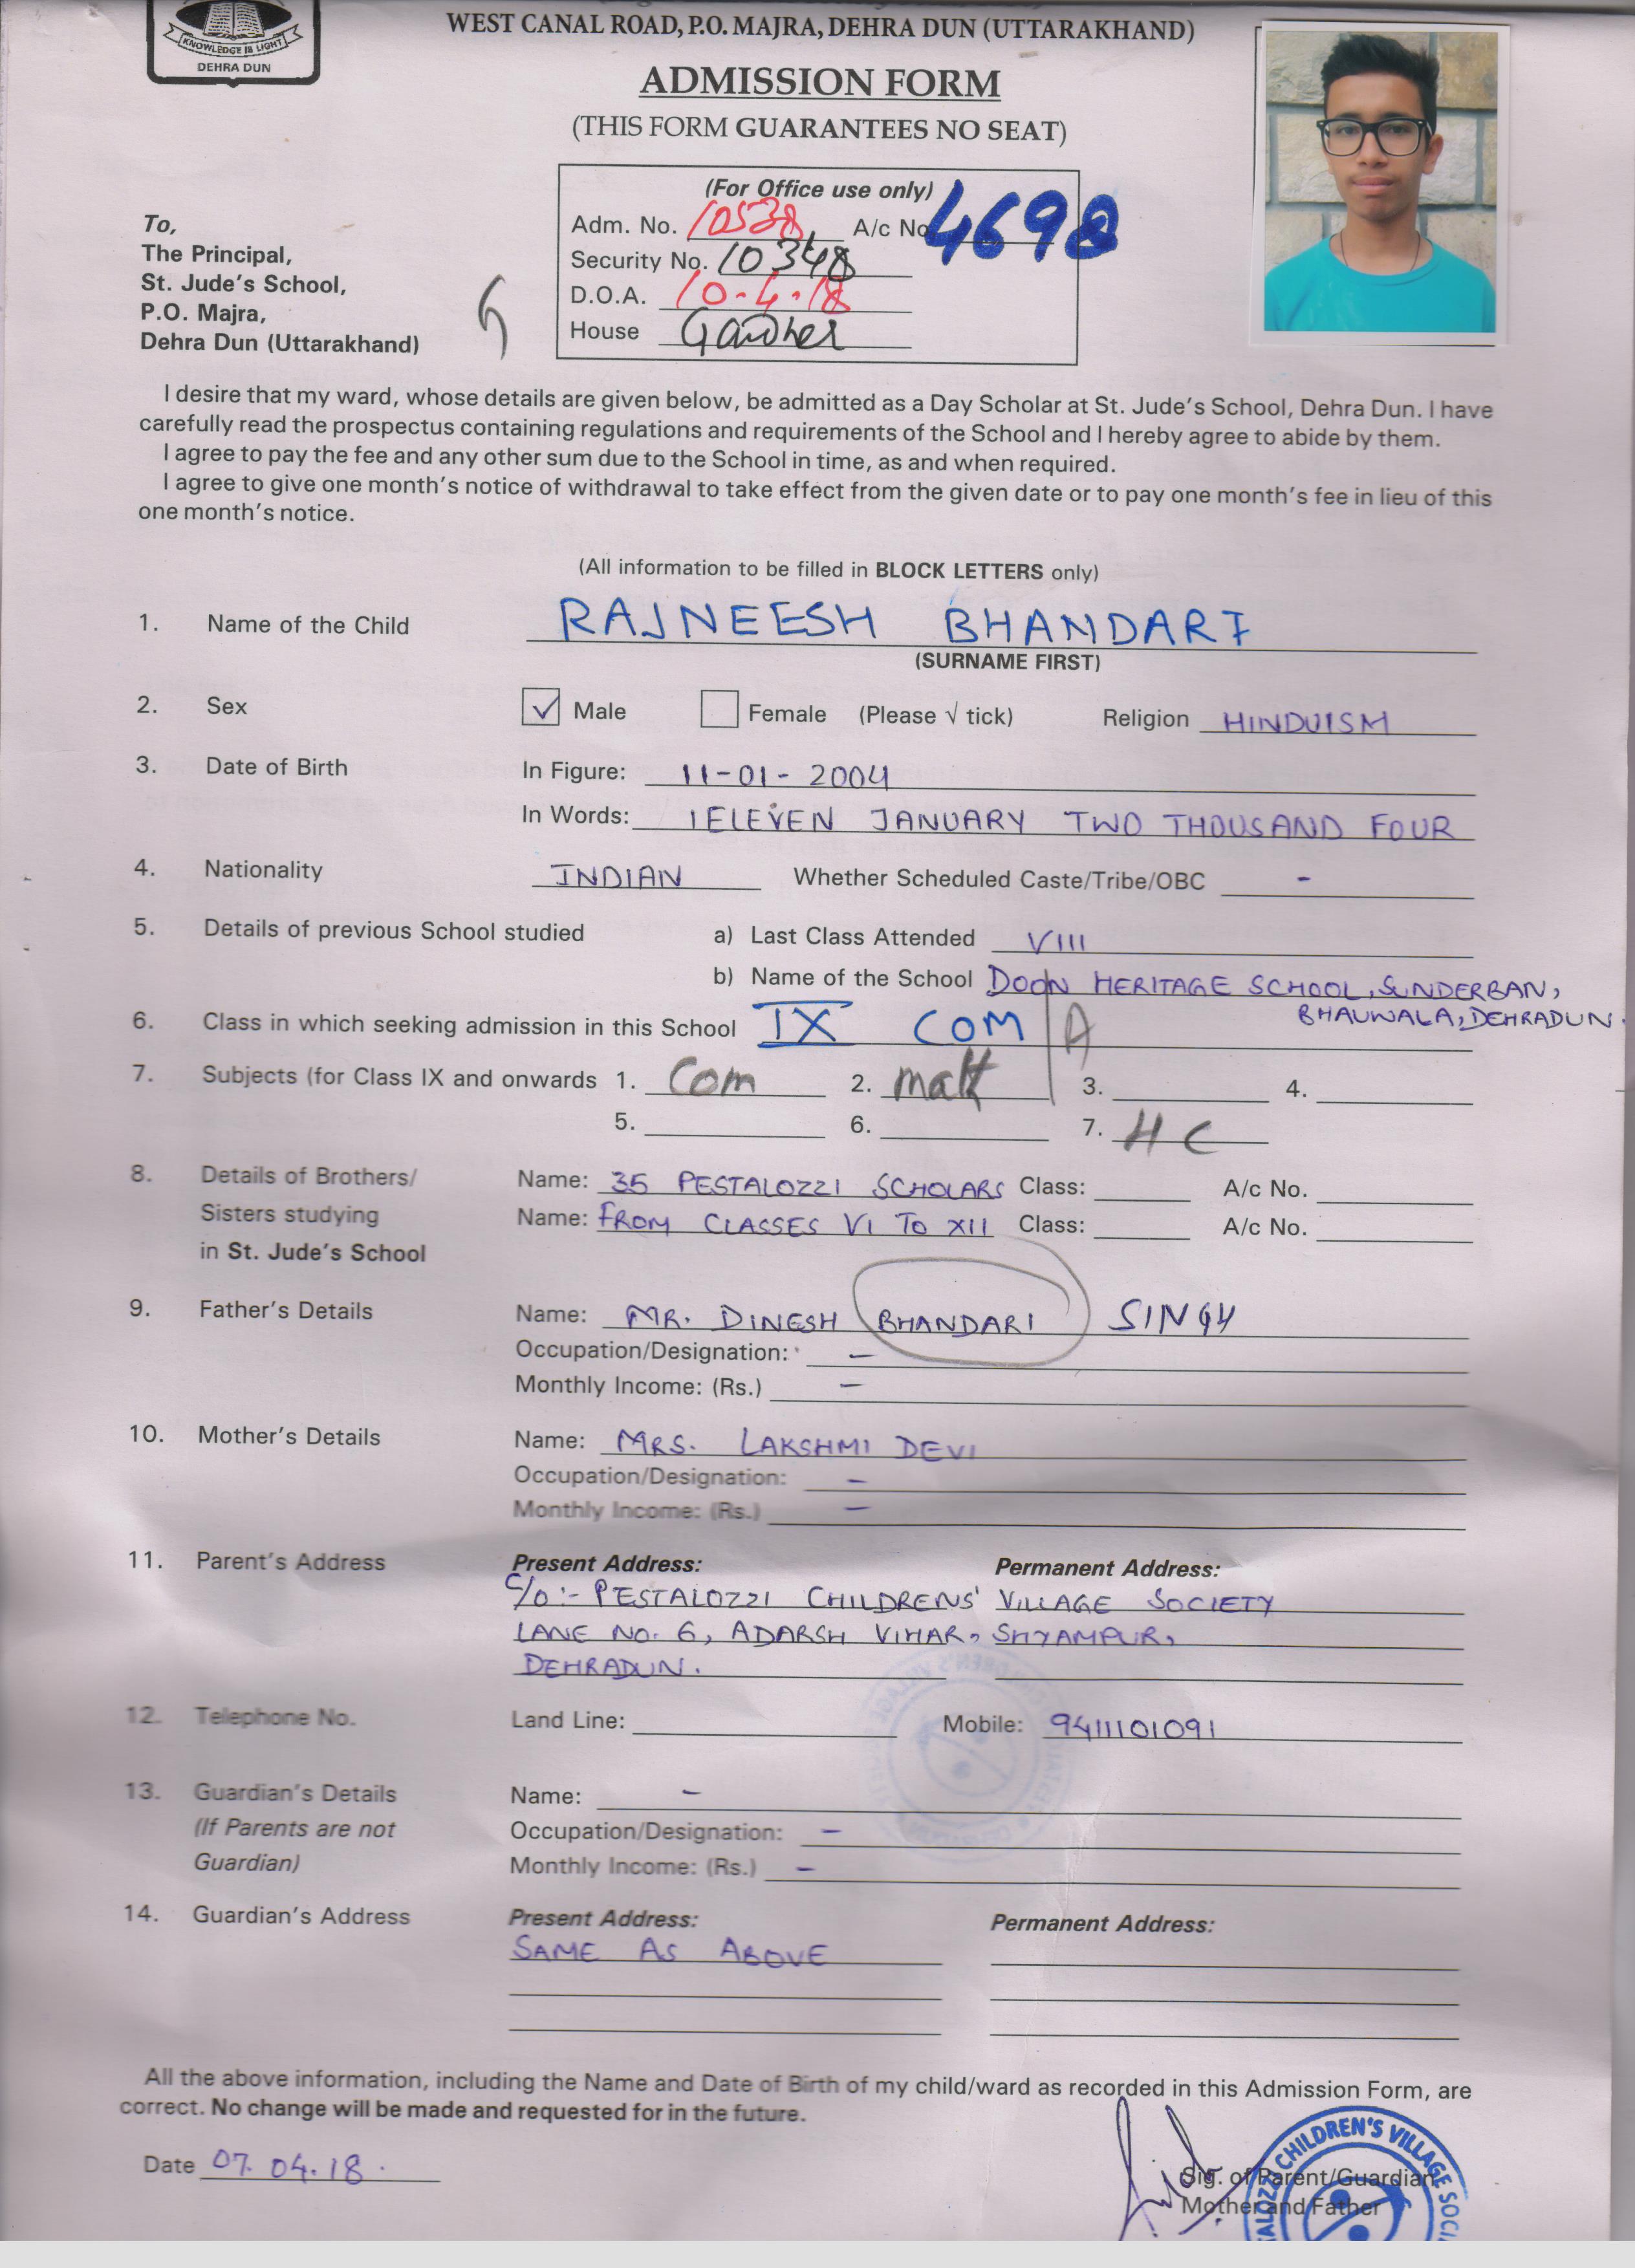 KNOWLEDGE IS LIGHT
DEHRA DUN
WEST CANAL ROAD, P.O. MAJRA, DEHRA DUN (UTTARAKHAND)
ADMISSION FORM
(THIS FORM GUARANTEES NO SEAT)
(For Office use only)
Adm. No. 10538 A/c No. 4698
Security No. 10348
D.O.A. 10-4-18
House
To,
The Principal,
St. Jude's School,
P.O. Majra,
Dehra Dun (Uttarakhand)
I desire that my ward, whose details are given below, be admitted as a Day Scholar at St. Jude's School, Dehra Dun. I have
carefully read the prospectus containing regulations and requirements of the School and I hereby agree to abide by them.
I agree to pay the fee and any other sum due to the School in time, as and when required.
I agree to give one month's notice of withdrawal to take effect from the given date or to pay one month's fee in lieu of this
one month's notice.
(All information to be filled in BLOCK LETTERS only)
1. Name of the Child RAJNEESH BHANDARI
(SURNAME FIRST)
2. Sex ✓ Male Female (Please √ tick) Religion HINDUISM
3. Date of Birth In Figure: 11-01-2004
In Words: ELEVEN JANUARY TWO THOUSAND FOUR
4. Nationality INDIAN Whether Scheduled Caste/Tribe/OBC -
5. Details of previous School studied a) Last Class Attended VIII
b) Name of the School DOON HERITAGE SCHOOL, SUNDERBAN,
BHAUWALA, DEHRADUN.
6. Class in which seeking admission in this School IX COM A
7. Subjects (for Class IX and onwards 1. Com 2. math 3. 4.
5. 6. 7. H C
8. Details of Brothers/ Name: 35 PESTALOZZI SCHOLARS Class: A/c No.
Sisters studying Name: FROM CLASSES VI TO XII Class: A/c No.
in St. Jude's School
9. Father's Details Name: MR. DINESH BHANDARI SINGH
Occupation/Designation: -
Monthly Income: (Rs.) -
10. Mother's Details Name: MRS. LAKSHMI DEVI
Occupation/Designation: -
Monthly Income: (Rs.) -
11. Parent's Address Present Address: Permanent Address:
C/O :- PESTALOZZI CHILDRENS' VILLAGE SOCIETY
LANE NO. 6, ADARSH VIHAR, SHYAMPUR,
DEHRADUN.
12. Telephone No. Land Line: Mobile: 9411101091
13. Guardian's Details Name: -
(If Parents are not Occupation/Designation: -
Guardian) Monthly Income: (Rs.) -
14. Guardian's Address Present Address: Permanent Address:
SAME AS ABOVE
All the above information, including the Name and Date of Birth of my child/ward as recorded in this Admission Form, are
correct. No change will be made and requested for in the future.
Date 07.04.18.
Sig. of Parent/Guardian
Mother and Father
CHILDREN'S VILLAGE